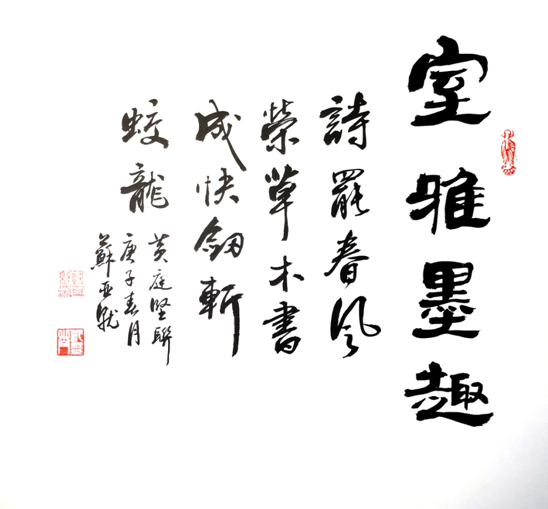 室雅墨趣
詩罷春風
榮草木書
成快劍斬
蛟龍
黄庭堅聯
庚子春月
蘇亚